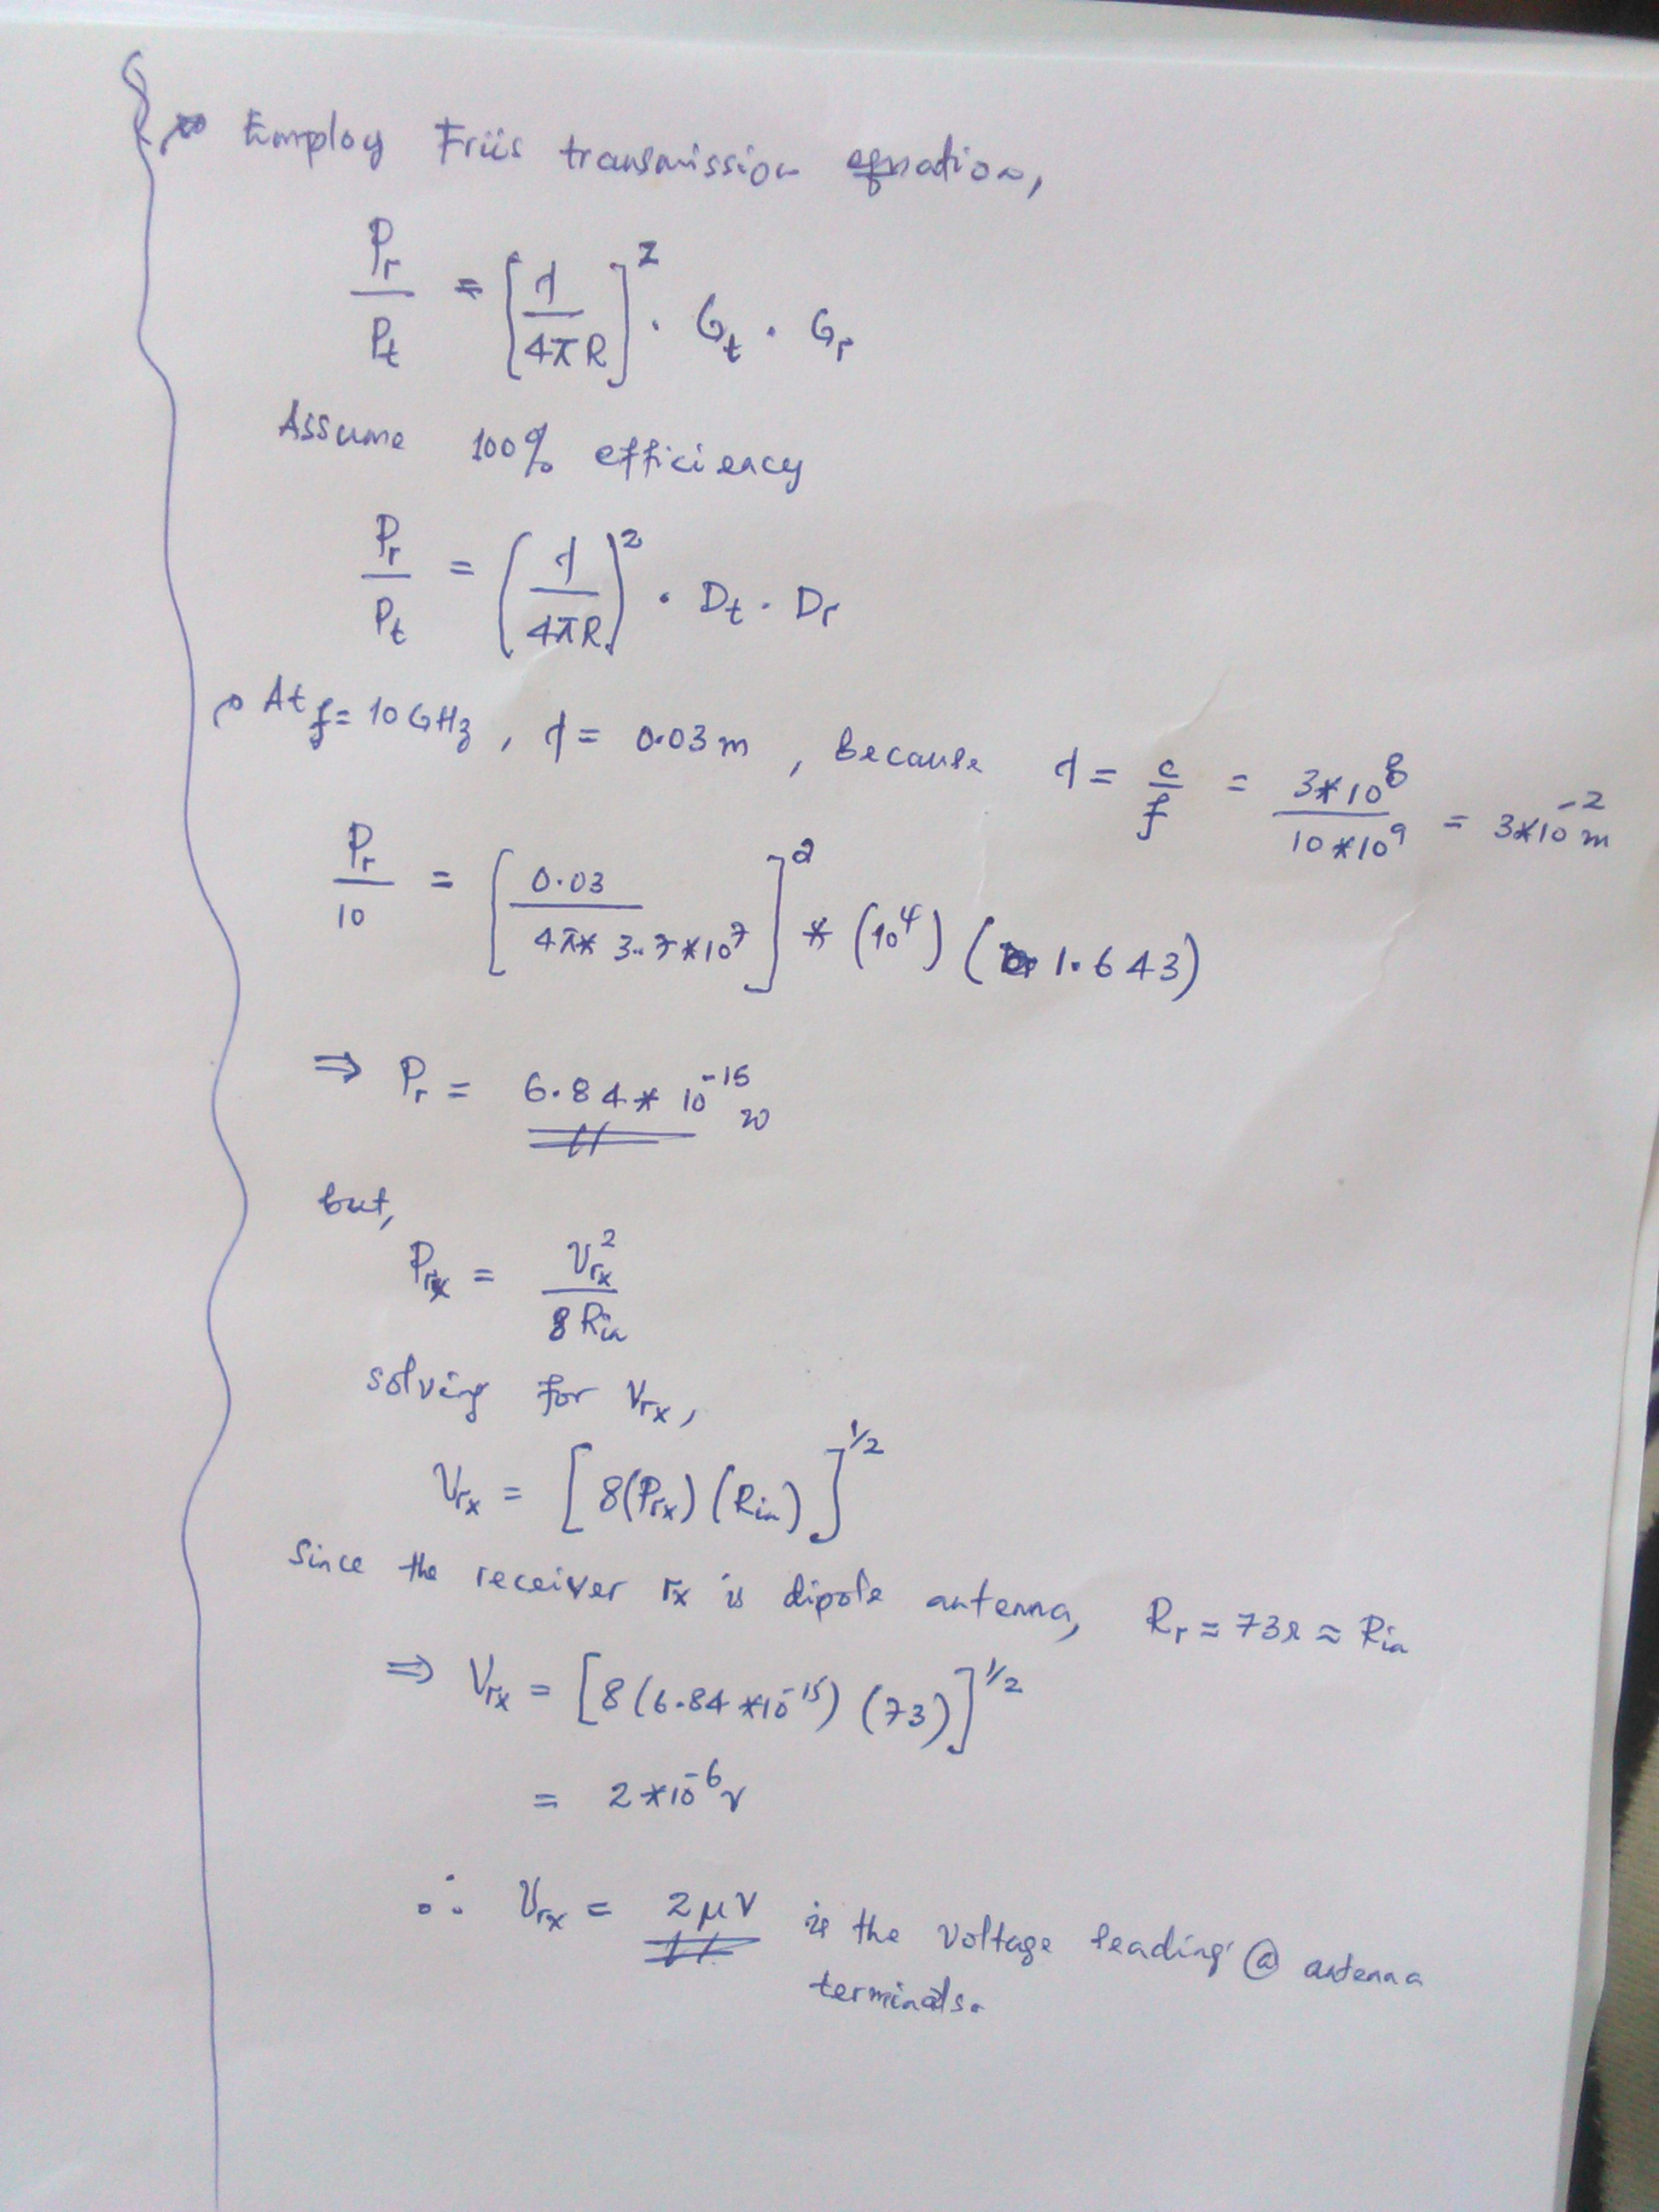 Employ Friis transmission equation,
Pr/Pt = [λ/4πR]^2 · Gt · Gr
Assume 100% efficiency
Pr/Pt = (λ/4πR)^2 · Dt · Dr
At f = 10 GHz, λ = 0.03 m, Because λ = c/f = 3*10^8/10*10^9 = 3*10^-2 m
Pr/10 = [0.03/4π* 3.7*10^7]^2 * (10^4) (1.643)
⇒ Pr = 6.84 * 10^-15 w
but,
Prx = Vrx^2/8 Rin
solving for Vrx,
Vrx = [8(Prx) (Rin)]^1/2
Since the receiver rx is dipole antenna, Rr ≈ 73Ω ≈ Rin
⇒ Vrx = [8 (6.84 *10^-15) (73)]^1/2
= 2 *10^-6 v
∴ Vrx = 2 μV is the voltage leading @ antenna
terminals.